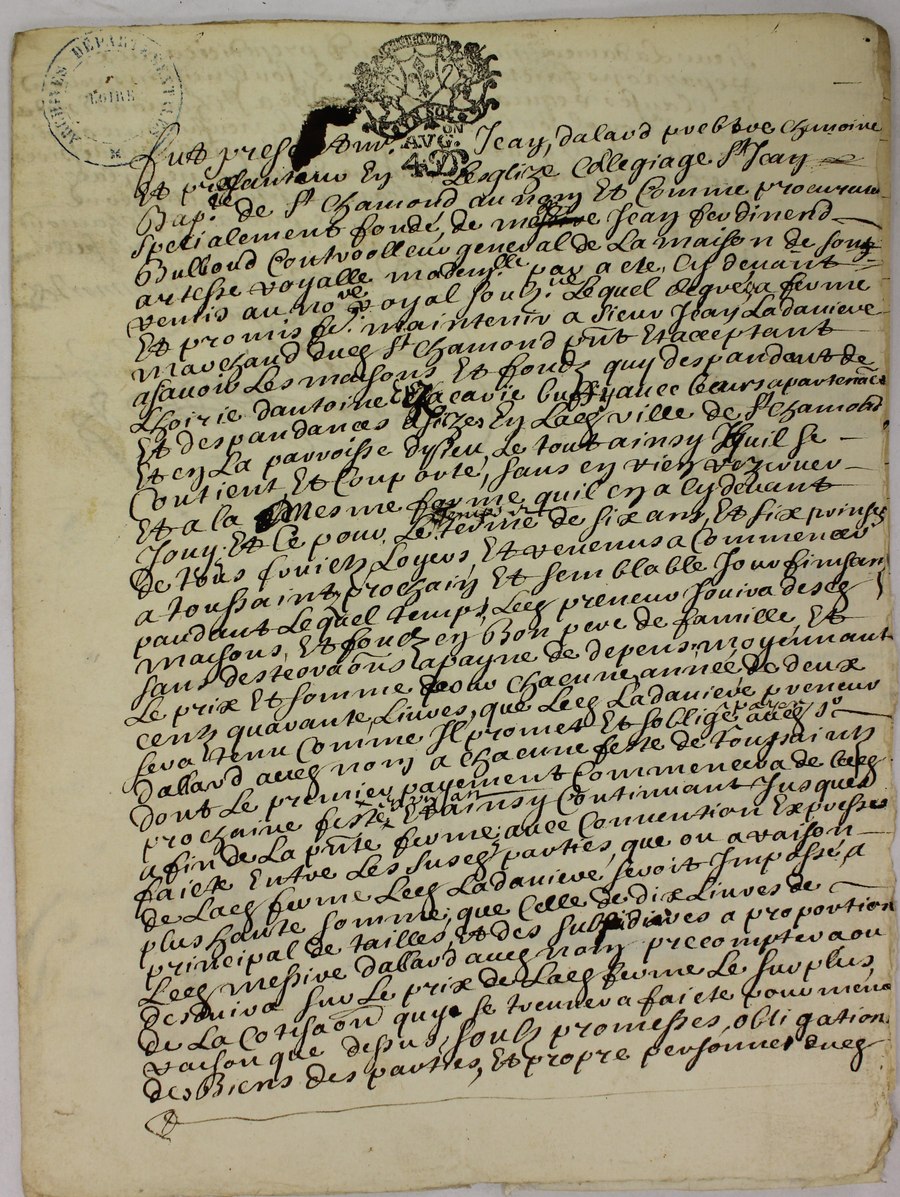 ARCHIVES DÉPARTEMENTALES
LOIRE
ON
AVG.
Fut present Mr. Jean dalard prebtre chanoine
Et presanteur En Lesglize Collegiage St Jean
Bap.te de St Chamond au nom Et Comme procureur
specialement fondé de messire Jean ferdinend
Bulhoud Controolleur general de La maison de son
artesse royalle mademlle par acte cy devant
remis au no.re royal soubz.ne Lequel de gré a fermé
Et promis f.e maintenir a sieur Jean Ladaniere
marchand dud St Chamond pnt Et acceptant
asauoir Les maisons Et fondz quy despandent de
Lhoirie dantoine Zacarie buffy auec leurs apartenāces
Et despandances assizes En Lad ville de St Chamond
Et en La parroisse dysieu Le tout ainsy quil se
Contient Et Comporte, sans en rien rezeruer
Et a la mesme ferme quil en a cy deuant
Jouy. Et Ce pour Le temps et terme de six ans Et six prinses
de tous fruicts Loyers, Et reuenus a Commencer
a toussaint prochain Et semblable Jour finissant
pandant Lequel temps Led preneur Jouira desd
maisons Et fondz en Bon pere de famille Et
sans desteoraōns a payne de depens moyennant
Le prix Et somme pour chacune année de deux
cents quarante Liures, que Led Ladaniere preneur
sera tenu Comme Il promet Et soblige payer aud sr
dallard aud nom a chacune feste de Toussaints
dont Le premier payement Commencera de lad
prochaine feste en un an Et ainsy Continuant Jusques
a fin de La pnte ferme auec Conuention Expresse
faicte Entre Les susd parties, que ou a raison
de Lad ferme Led Ladaniere seroit Imposé a
plus haute somme que Celle de dix Liures de
principal de tailles, Et des subsidiaires a proportion
Led messire dalard aud nom precomptera ou
desduira sur Le prix de Lad ferme Le surplus
de La Cotisaōn quy se treuuera faicte pour mesme
raison que dessus, soubz promesses, obligation
des Biens des parties, Et propre personne dud